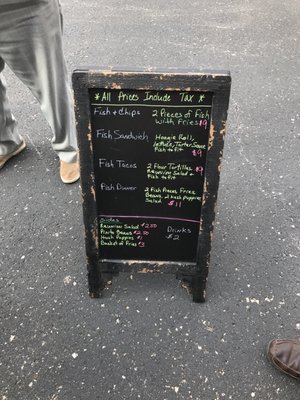 * All Prices Include Tax *
Fish + Chips 2 Pieces of Fish
With Fries $9
Fish Sandwich Hoagie Roll,
Lettuce, Tarter Sauce
Fish to fit $9
Fish Tacos 2 Flour Tortillas $9
Peruvian Salad +
Fish to fit
Fish Dinner 2 Fish Pieces Fries
Beans, 2 Hush Puppies
$11
Sides
Peruvian Salad $2.50
Pinto Beans $2.50
Hush Puppies $1
Basket of Fries $3
Drinks
$2